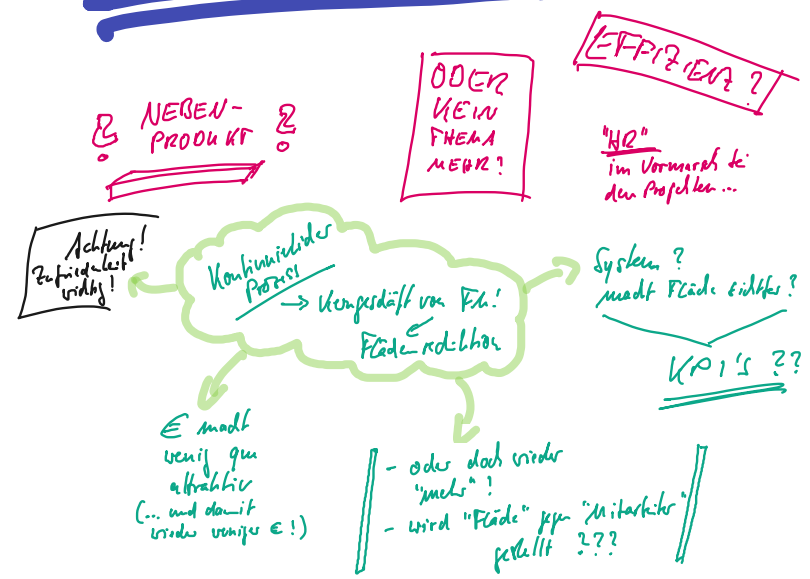 EFFIZIENZ?
? NEBEN-
PRODUKT ?
ODER
KEIN
THEMA
MEHR?
"HR"
im Vormarsch bei
den Projekten...
Achtung!
Zufriedenheit
wichtig!
Kontinuierlicher
Prozess
→ Kerngeschäft von FM!
Flächenreduktion
System?
macht Fläche sichtbar?
KPI's ??
€ macht
wenig qm
attraktiv
(... und damit
wieder weniger €!)
- oder doch wieder
"mehr"!
- wird "Fläche" gegen "Mitarbeiter"
gestellt ???